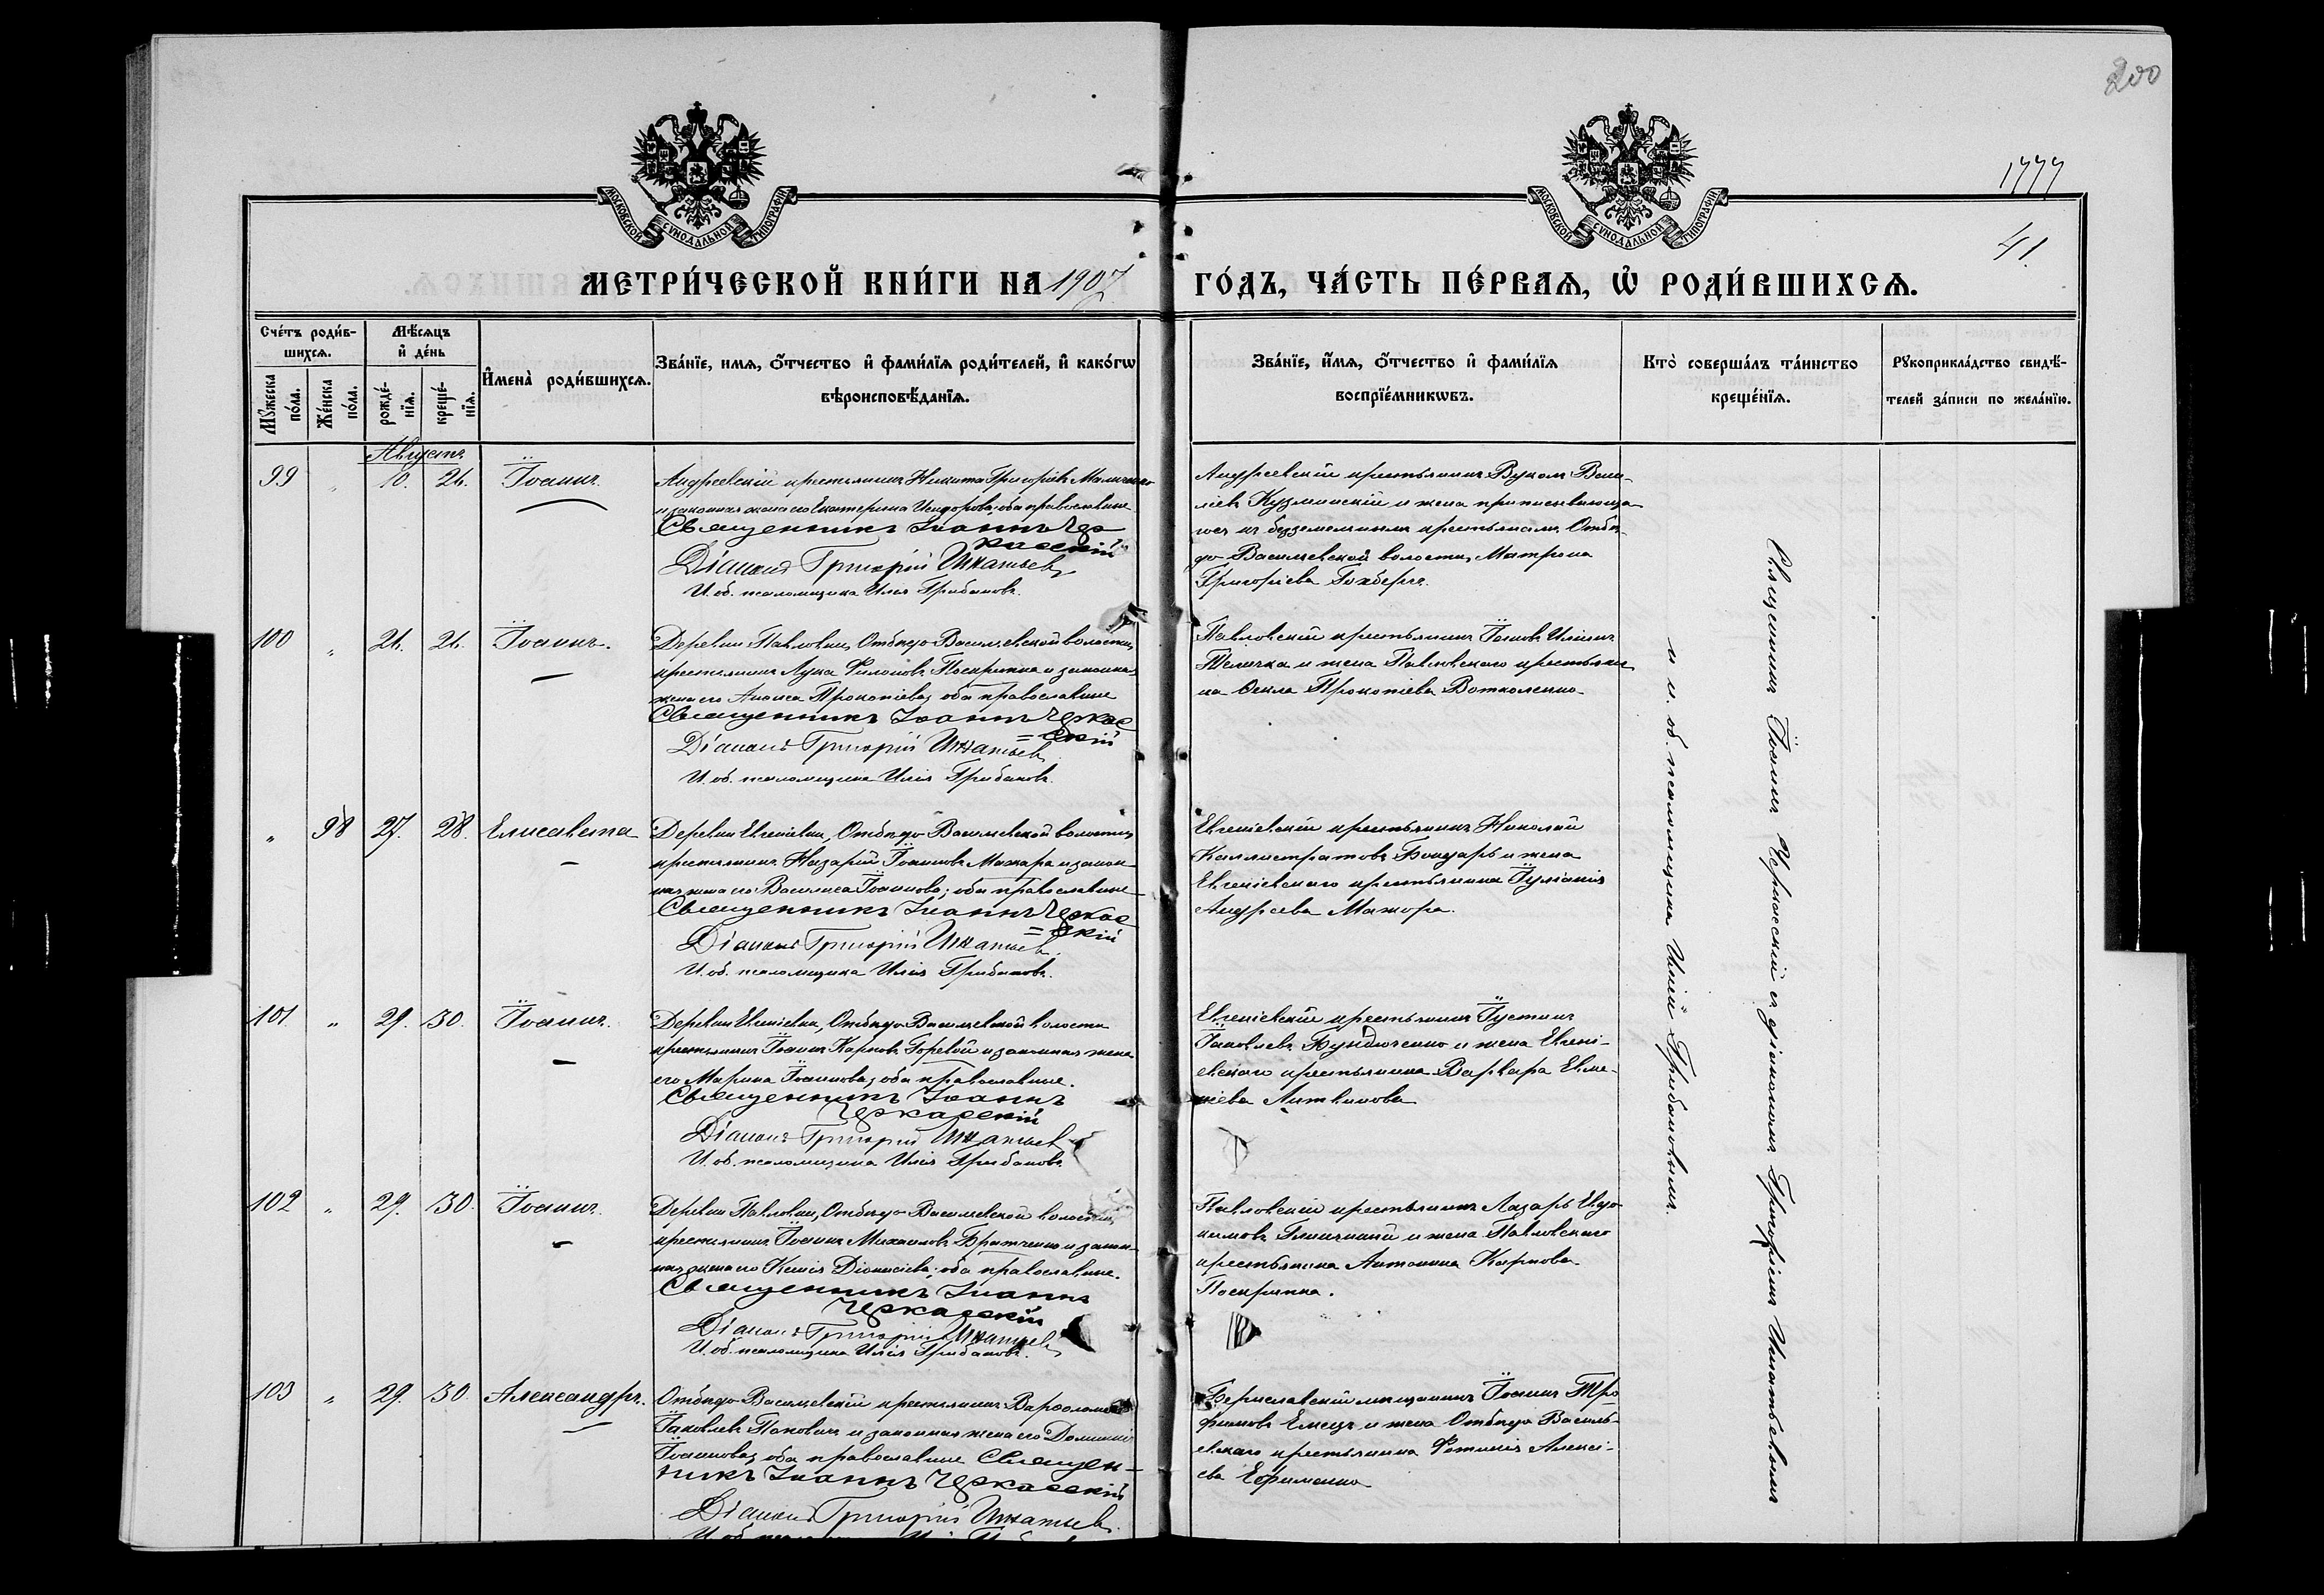 200
1777
41.
МОСКОВСКОЙ СѴНОДАЛЬНОЙ ТИПОГРАФІИ
МОСКОВСКОЙ СѴНОДАЛЬНОЙ ТИПОГРАФІИ
МЕТРИ́ЧЕСКОЙ КНИ́ГИ НА 1907
ГО́ДЪ, ЧА́СТЬ ПЕ́РВАѦ, Ѡ РОДИ́ВШИХСѦ.
Сче́тъ роди́в-
шихсѧ.
Мꙋжеска по́ла.
Же́нска по́ла.
Мѣ́сѧцъ
и҆ де́нь
рожде́-
нїѧ.
креще́-
нїѧ.
И҆мена̀ роди́вшихсѧ.
Зва́нїе, имѧ, ѻ҆́тчество и҆ фами́лїѧ роди́телей, и҆ како́гѡ
вѣроисповѣ́данїѧ.
Зва́нїе, и҆́мѧ, ѻ҆́тчество и҆ фами́лїѧ
воспрїе́мникѡвъ.
Кто̀ соверша́лъ та́инство
креще́нїѧ.
Рꙋкоприкла́дство свидѣ́-
телей за́писи по жела́нїю.
Августъ
99 " 10. 26. Іоаннъ.
Андреевскій крестьянинъ Никита Григорьевъ
и законная жена его Екатерина Исидорова, оба православные
Священникъ Іоаннъ Чер
касскій
Діаконъ Григорій Игнатьевъ
И. об. псаломщика Илія Грибановъ.
Андреевскій крестьянинъ Вукол Васи-
ліевъ Кузминскій и жена приписывающа-
гося къ безземельнымъ крестьянамъ Отбѣ-
до Васильевской волости, Матрона
Григоріева
100 " 26. 26. Іоаннъ.
Деревни Павловки, Отбѣдо-Васильевской волости,
крестьянинъ Лука Филоновъ Поскрипка и законная
жена его Анисія Прокопіева, оба православные
Священникъ Іоаннъ Черкас
=скій
Діаконъ Григорій Игнатьевъ
И. об. псаломщика Илія Грибановъ.
Павловскій крестьянинъ Іаковъ Иліинъ
Теличка и жена Павловскаго крестьяни-
на Ѳекла Прокопіева
" 98 27. 28. Елисавета
Деревни Евгеніевки, Отбѣдо-Васильевской волости,
крестьянинъ Назарій Іоанновъ Мажара и закон-
ная жена его Василиса Іоаннова; оба православные
Священникъ Іоаннъ Черкас
=скій
Діаконъ Григорій Игнатьевъ.
И. об. псаломщика Илія Грибановъ.
Евгеніевскій крестьянинъ Николай
Каллистратовъ Бондарь и жена
Евгеніевскаго крестьянина Іуліанія
Андреева Мажара.
101 " 29. 30. Іоаннъ.
Деревни Евгеніевки, Отбѣдо-Васильевской волости
крестьянинъ Іоаннъ Карповъ Горевой и законная жена
его Марина Іоаннова, оба православные.
Священникъ Іоаннъ
Черкасскій
Діаконъ Григорій Игнатьевъ
И. об. псаломщика Илія Грибановъ
Евгеніевскій крестьянинъ Іустинъ
Іаковлевъ Бундюченко и жена Евгені-
евскаго крестьянина Варвара Евме-
ніева Литвинова
102 " 29. 30. Іоаннъ.
Деревни Павловки, Отбѣдо-Васильевской волости,
крестьянинъ Іоаннъ Михаиловъ Братченко и закон-
ная жена его Ксенія Діонисіева; оба православные.
Священникъ Іоаннъ
Черкасскій
Діаконъ Григорій Игнатьевъ
И. об. псаломщика Илія Грибановъ.
Павловскій крестьянинъ Лазарь Евдо-
кимовъ и жена Павловскаго
крестьянина Антонина Карпова
Поскрипка.
103 " 29. 30. Александръ.
Отбѣдо-Васильевскій крестьянинъ Варѳоломей
Іаковлевъ и законная жена его Домникія
Іоаннова, оба православные Священ-
никъ Іоаннъ Черкасскій
Діаконъ Григорій Игнатьевъ.
Бериславскій мѣщанинъ Іоаннъ Тро-
фимовъ Емецъ и жена Отбѣдо Василь-
евскаго крестьянина Фотинія Алексі-
ева Ефименко
Священникъ Іоаннъ Черкасскій съ діакономъ Григоріемъ Игнатьевымъ
и и. об. псаломщика Иліей Грибановымъ.